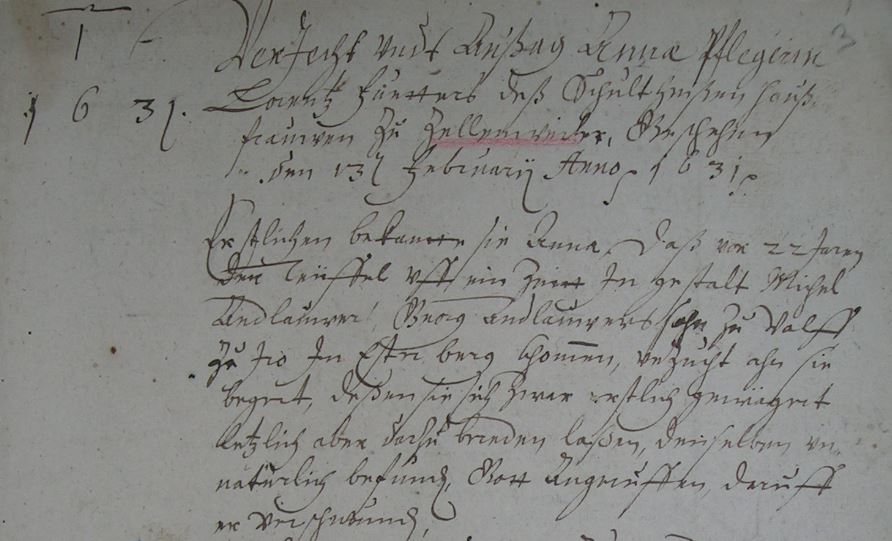 I
1631.
Verjecht undt Außag Annæ Pflegerin
Lorentz Hütters deß Schultheißen hauß
frauwen zu Zellenweiler, Beschehen
den 13 Februarij Anno 1631.
Erstlichen bekante sie Anna, daß vor 22 Jaren
der Teüffel uff ein Zeit In gestalt Michel
Andlauwer, Georg Andlauwers sohn zu Valff
zu Iro In berg khommen, unzucht ahn sie
begert, deßen sie sich zwar erstlich gewägert
letzlich aber darzu breden laßen, denselben un
natürlich befund, Gott Angeruffen, daruff
er verschwund,